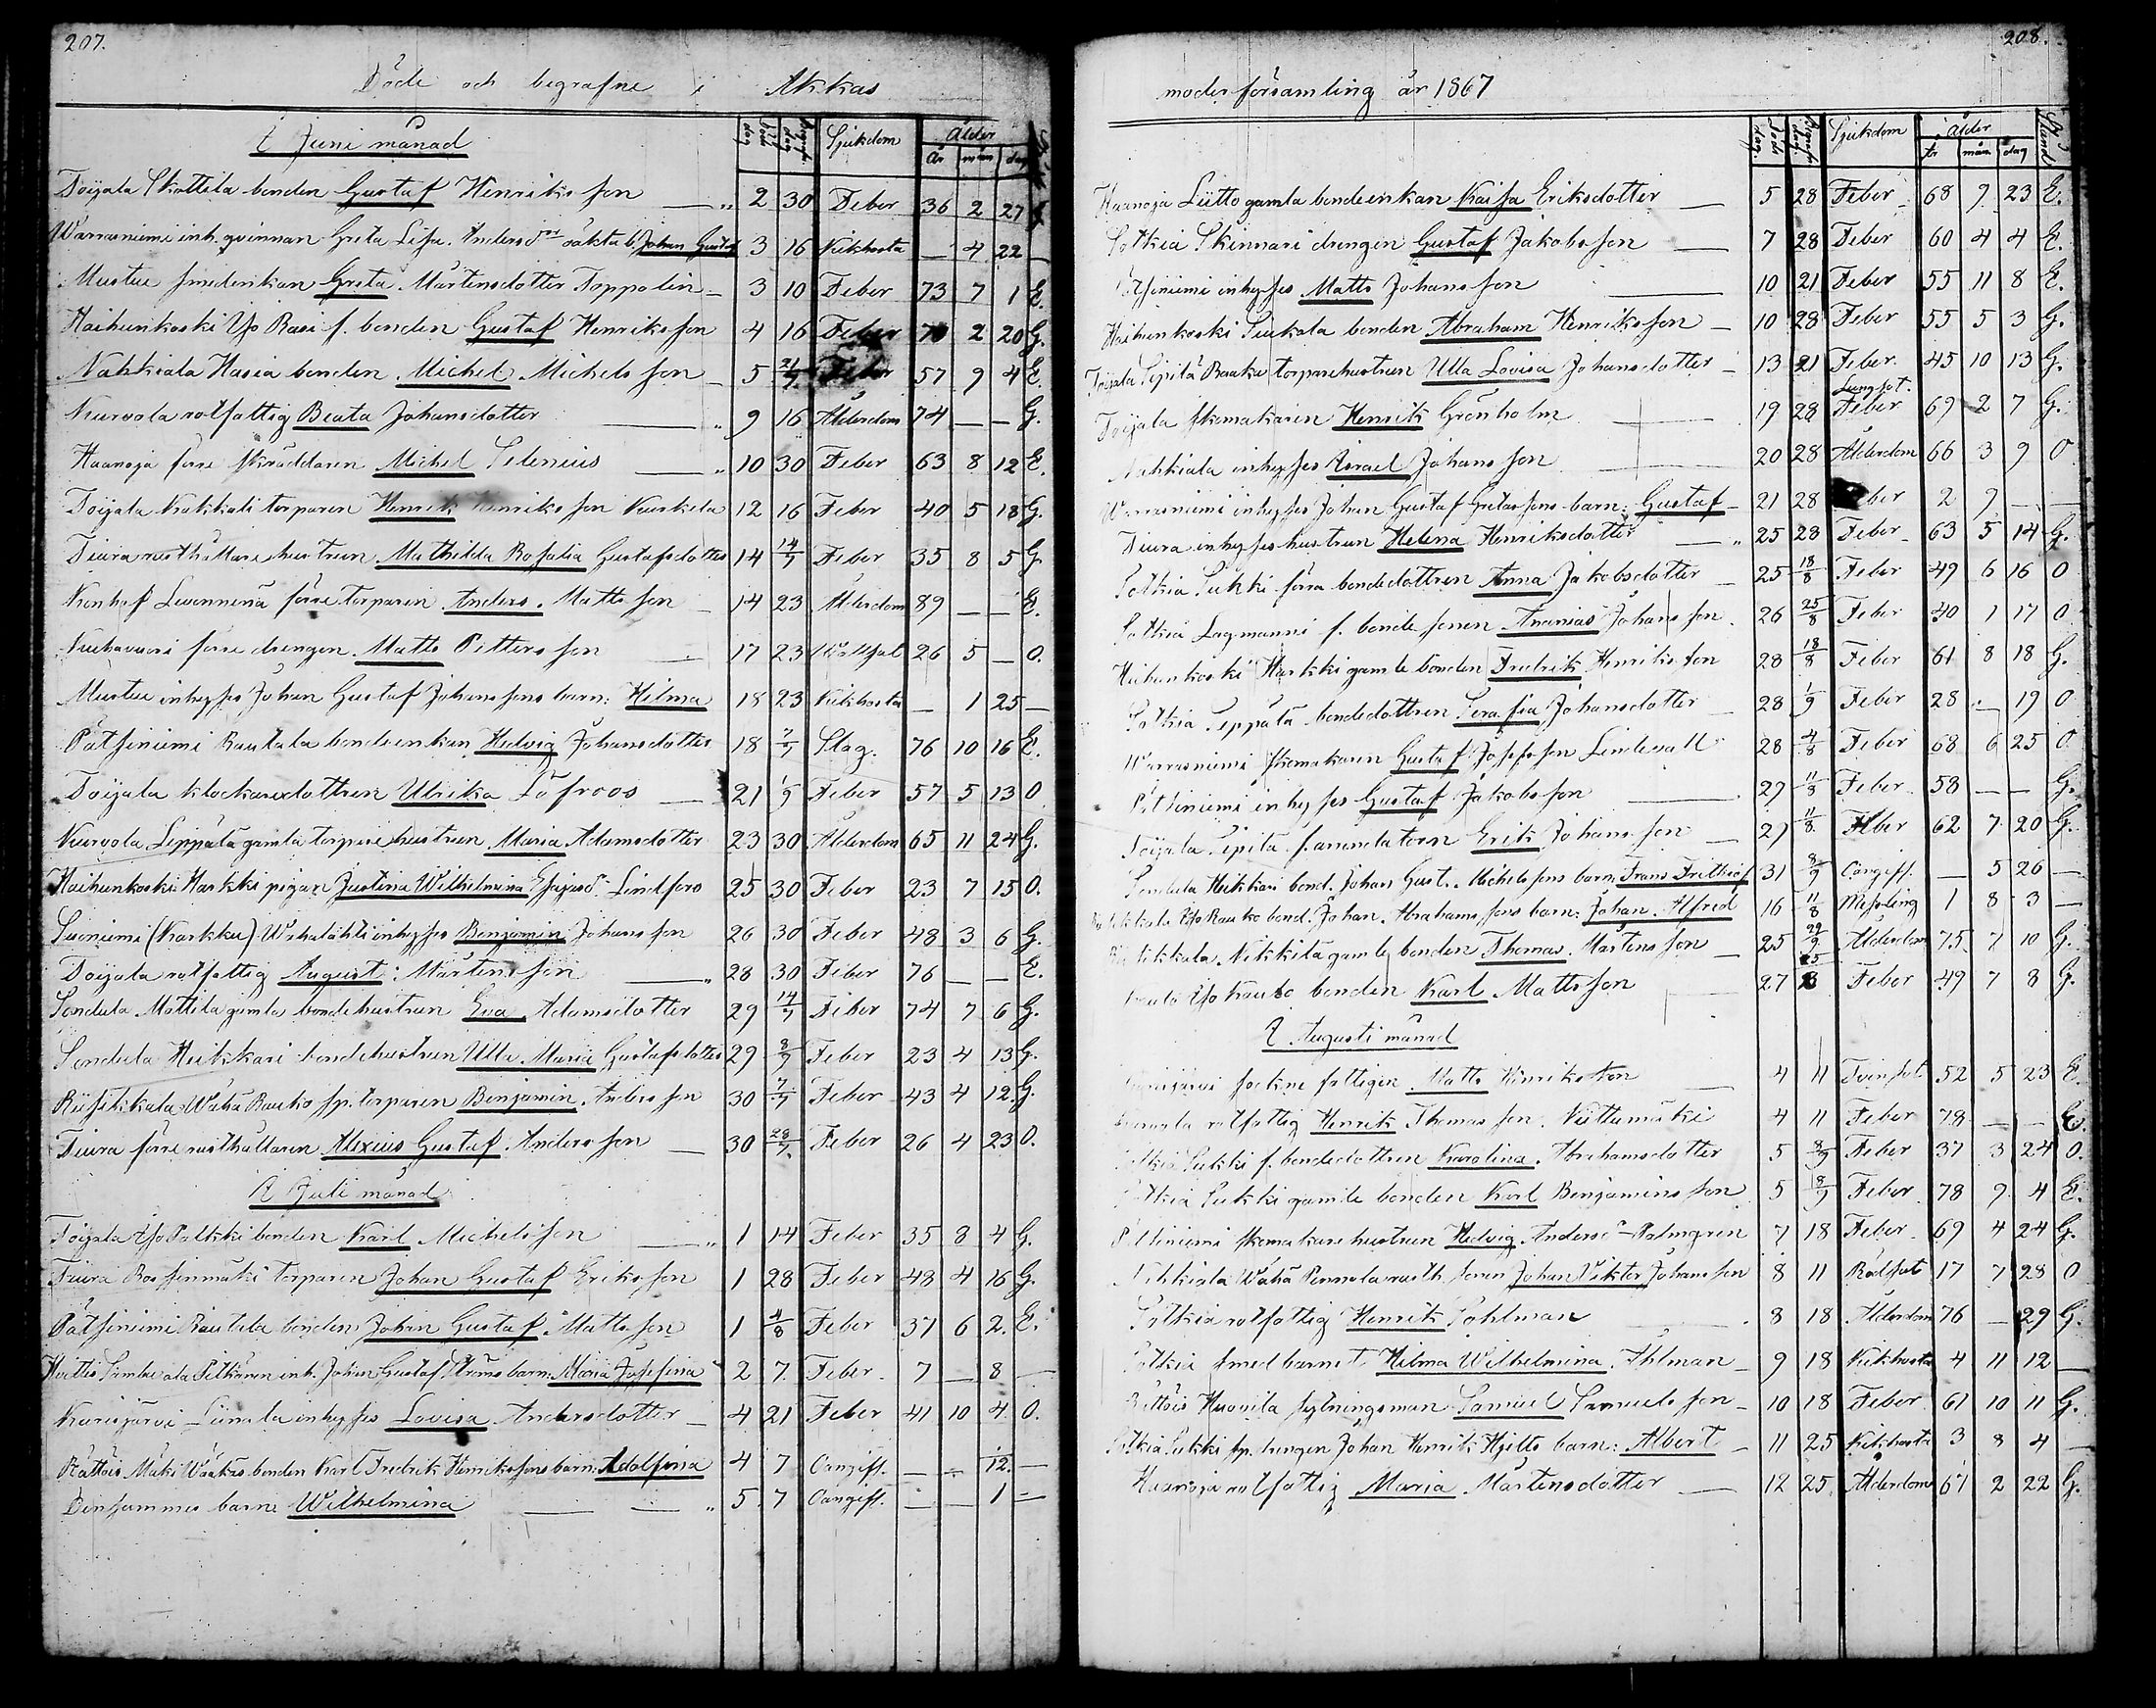 207.
Döde och begrafne i Akkas
I Juni månad
Död dag Sjukdom Ålder
år mån dag
Toijala Skattila bonden Gustaf Henriksson 2 30 Feber 36 2 27
Warrasniemi inh. qvinnan Greta Lisa Andersdr oäkta b. Johan Gustaf 3 16 Kikhosta — 4 22 —
Mustue smedenkan Greta Mårtensdotter Toppolin — 3 10 Feber 73 7 1 E.
Haihunkoski Yso Rasi f. bonden Gustaf Henriksson 4 16 Feber 2 20 G.
Nahkiala Hasia bonden Michel Michelsson 5 Feber 57 9 4 E.
Kurvola rotfattig Beata Johansdotter 9 16 Ålderdom 74 — — G.
Haanoja förre skräddaren Michel Selenius 10 30 Feber 63 8 12 E.
Toijala Nakkali torparen Henrik Henriksson 12 16 Feber 40 5 18 G.
Tiura rusthållare hustrun Mathilda Rosalia Gustafsdotter 14 14/7 Feber 35 8 5 G.
Konhof förre torparen Anders Mattsson 14 23 Ålderdom 89 — — E.
förre drengen Matts Pettersson 17 23 26 5 — O.
Mustue inhyses Johan Gustaf Johanssons barn: Hilma 18 23 Kikhosta — 1 25 —
Pätsiniemi Rautala bondeenkan Hedvig Johansdotter 18 7/7 Slag. 76 10 16 E.
Toijala klockaredottren Ulrika Löfroos 21 Feber 57 5 13 O
Kurvola Seppälä gamla torpare hustrun Maria Adamsdotter 23 30 Ålderdom 65 11 24 G.
Haihunkoski Harkki pigan Justina Wilhelmina Esajasdr Lindfors 25 30 Feber 23 7 15 O.
(Karkku) Wahalahti inhyses Benjamin Johansson 26 30 Feber 48 3 6 G.
Toijala rotfattig August Mårtensson 28 30 Feber 76 — — E.
Sondula Mattila gamla bondehustrun Eva Adamsdotter 29 14/7 Feber 74 7 6 G.
Sondula Heikkari bondehustrun Ulla Maria Gustafsdotter 29 8/9 Feber 23 4 13 G.
Wähä Rauko sp. torparen Benjamin Andersson 30 7/7 Feber 43 4 12 G.
Tiura förre rusthållaren Alexius Gustaf Andersson 30 28/7 Feber 26 4 23 O.
I Juli månad
Toijala Yso Palkki bonden Karl Michelsson 1 14 Feber 35 8 4 G.
Tiura torparen Johan Gustaf Eriksson 1 28 Feber 48 4 16 G.
Pätsiniemi Rautala bonden Johan Gustaf Mattsson 1 4/8 Feber 37 6 2 E.
inh. Johan Gustaf Ströms barn: Maria Josefina 2 7 Feber 7 — 8 —
Kurisjärvi Liunala inhyses Lovisa Andersdotter 4 21 Feber 41 10 4 O.
Rättöis Mäki Wänkäs bonden Karl Fredrik Henrikssons barn: Adolfina 4 7 Oangiff. — — 12 —
Densammes barn: Wilhelmina 5 7 Oangiff. — — 1 —
208.
moderförsamling år 1867
Död dag. Sjukdom Ålder Stånd
år mån dag
Haanoja Lütto gamla bondeenkan Kaisa Eriksdotter 5 28 Feber 68 9 23 E.
Sotkia Skinnari drengen Gustaf Jakobsson 7 28 Feber 60 4 4 E.
Pätsiniemi inhyses Matts Johansson 10 21 Feber 55 11 8 E.
Haihunkoski Siukola bonden Abraham Henriksson 10 28 Feber 55 5 3 G.
Toijala Sipilä Rauku torparehustrun Ulla Lovisa Johansdotter 13 21 Feber 45 10 13 G.
Toijala skomakaren Henrik Grönholm 19 28 Lungsot. Feber 69 2 7 G.
Nahkiala inhyses Israel Johansson 20 28 Ålderdom 66 3 9 O.
Warrasniemi inhyses Johan Gustaf barn: Gustaf 21 28 Feber 2 9 — —
Tiura inhyseshustrun Helena Henriksdotter 25 28 Feber 63 5 14 G.
Sotkia Sukki förra bondedottren Anna Jakobsdotter 25 18/8 Feber 49 6 16 O
Sotkia Lagmanni f. bondesonen Ananias Johansson 26 25/8 Feber 40 1 17 O
Haihunkoski Harkki gamle bonden Fredrik Henriksson 28 18/8 Feber 61 8 18 G.
Sotkia Seppälä bondedottren Serafia Johansdotter 28 1/9 Feber 28 — 19 O
Warrasniemi skomakaren Gustaf Josefsson Lindewall 28 4/8 Feber 68 6 25 O.
Pätsiniemi inhyses Gustaf Jakobsson 29 11/8 Feber 58 — — G.
Toijala Sipilä f. arrendatorn Erik Johansson 29 11/8 Feber 62 7 20 G.
Sondula Heikkari bond. Johan Gust. Michelssons barn: Frans Frithiof 31 8/9 Oangiff. — 5 26 —
Yso Rauko bond. Johan Abrahamssons barn: Johan Alfred 16 11/8 Messling 1 8 3 —
Nikkilä gamle bonden Thomas Mårtensson 25 Ålderdom 75 7 10 G.
bonden Karl Mattsson 27 Feber 49 7 8 G.
I Augusti månad
sockne fattigen Matts Henriksson 4 11 Tvinsot. 52 5 23 E.
rotfattig Henrik Thomasson 4 11 Feber 78 — — E.
Sotkia Sukki f. bondedottren Karolina Abrahamsdotter 5 8/9 Feber 37 3 24 O.
Sotkia Sukki gamle bonden Karl Benjaminsson 5 Feber 78 9 4 E.
skomakarehustrun Hedvig Andersdr Palmgren 7 18 Feber 69 4 24 G.
Nahkiala Wähä Pennola rusth. sonen Johan Viktor Johansson 8 11 Rödsot 17 7 28 O
Sotkia rotfattig Henrik Sohlman 8 18 Ålderdom 76 — 29 G.
Sotkia smedbarnet Hilma Wilhelmina Åhlman 9 18 Kikhosta 4 11 12 —
Rättöis Huovila fylningsman Samuel Samuelsson 10 18 Feber 61 10 11 G.
Sotkia Sukki sp. drengen Johan Henrik Hjelts barn: Albert 11 25 Kikhosta 3 8 4 —
Haanoja rotfattig Maria Mårtensdotter 12 25 Ålderdom 67 2 22 G.